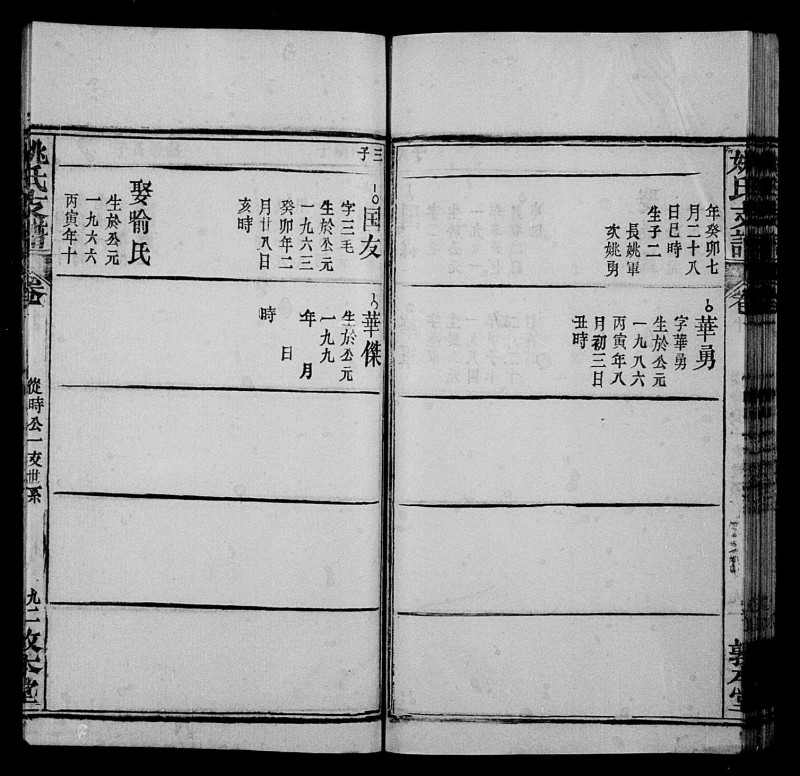 年癸卯七
月二十八
日巳時
生子二
長姚軍
次姚勇
華勇
字華勇
生於公元
一九八六
丙寅年八
月初三日
丑時
三子
国友
字三毛
生於公元
一九六三
癸卯年二
月廿八日
亥時
娶喻氏
生於公元
一九六六
丙寅年十
華傑
生於公元
一九九
年 月
日
時
姚氏支譜
從時公一支世系
九二
敦本堂